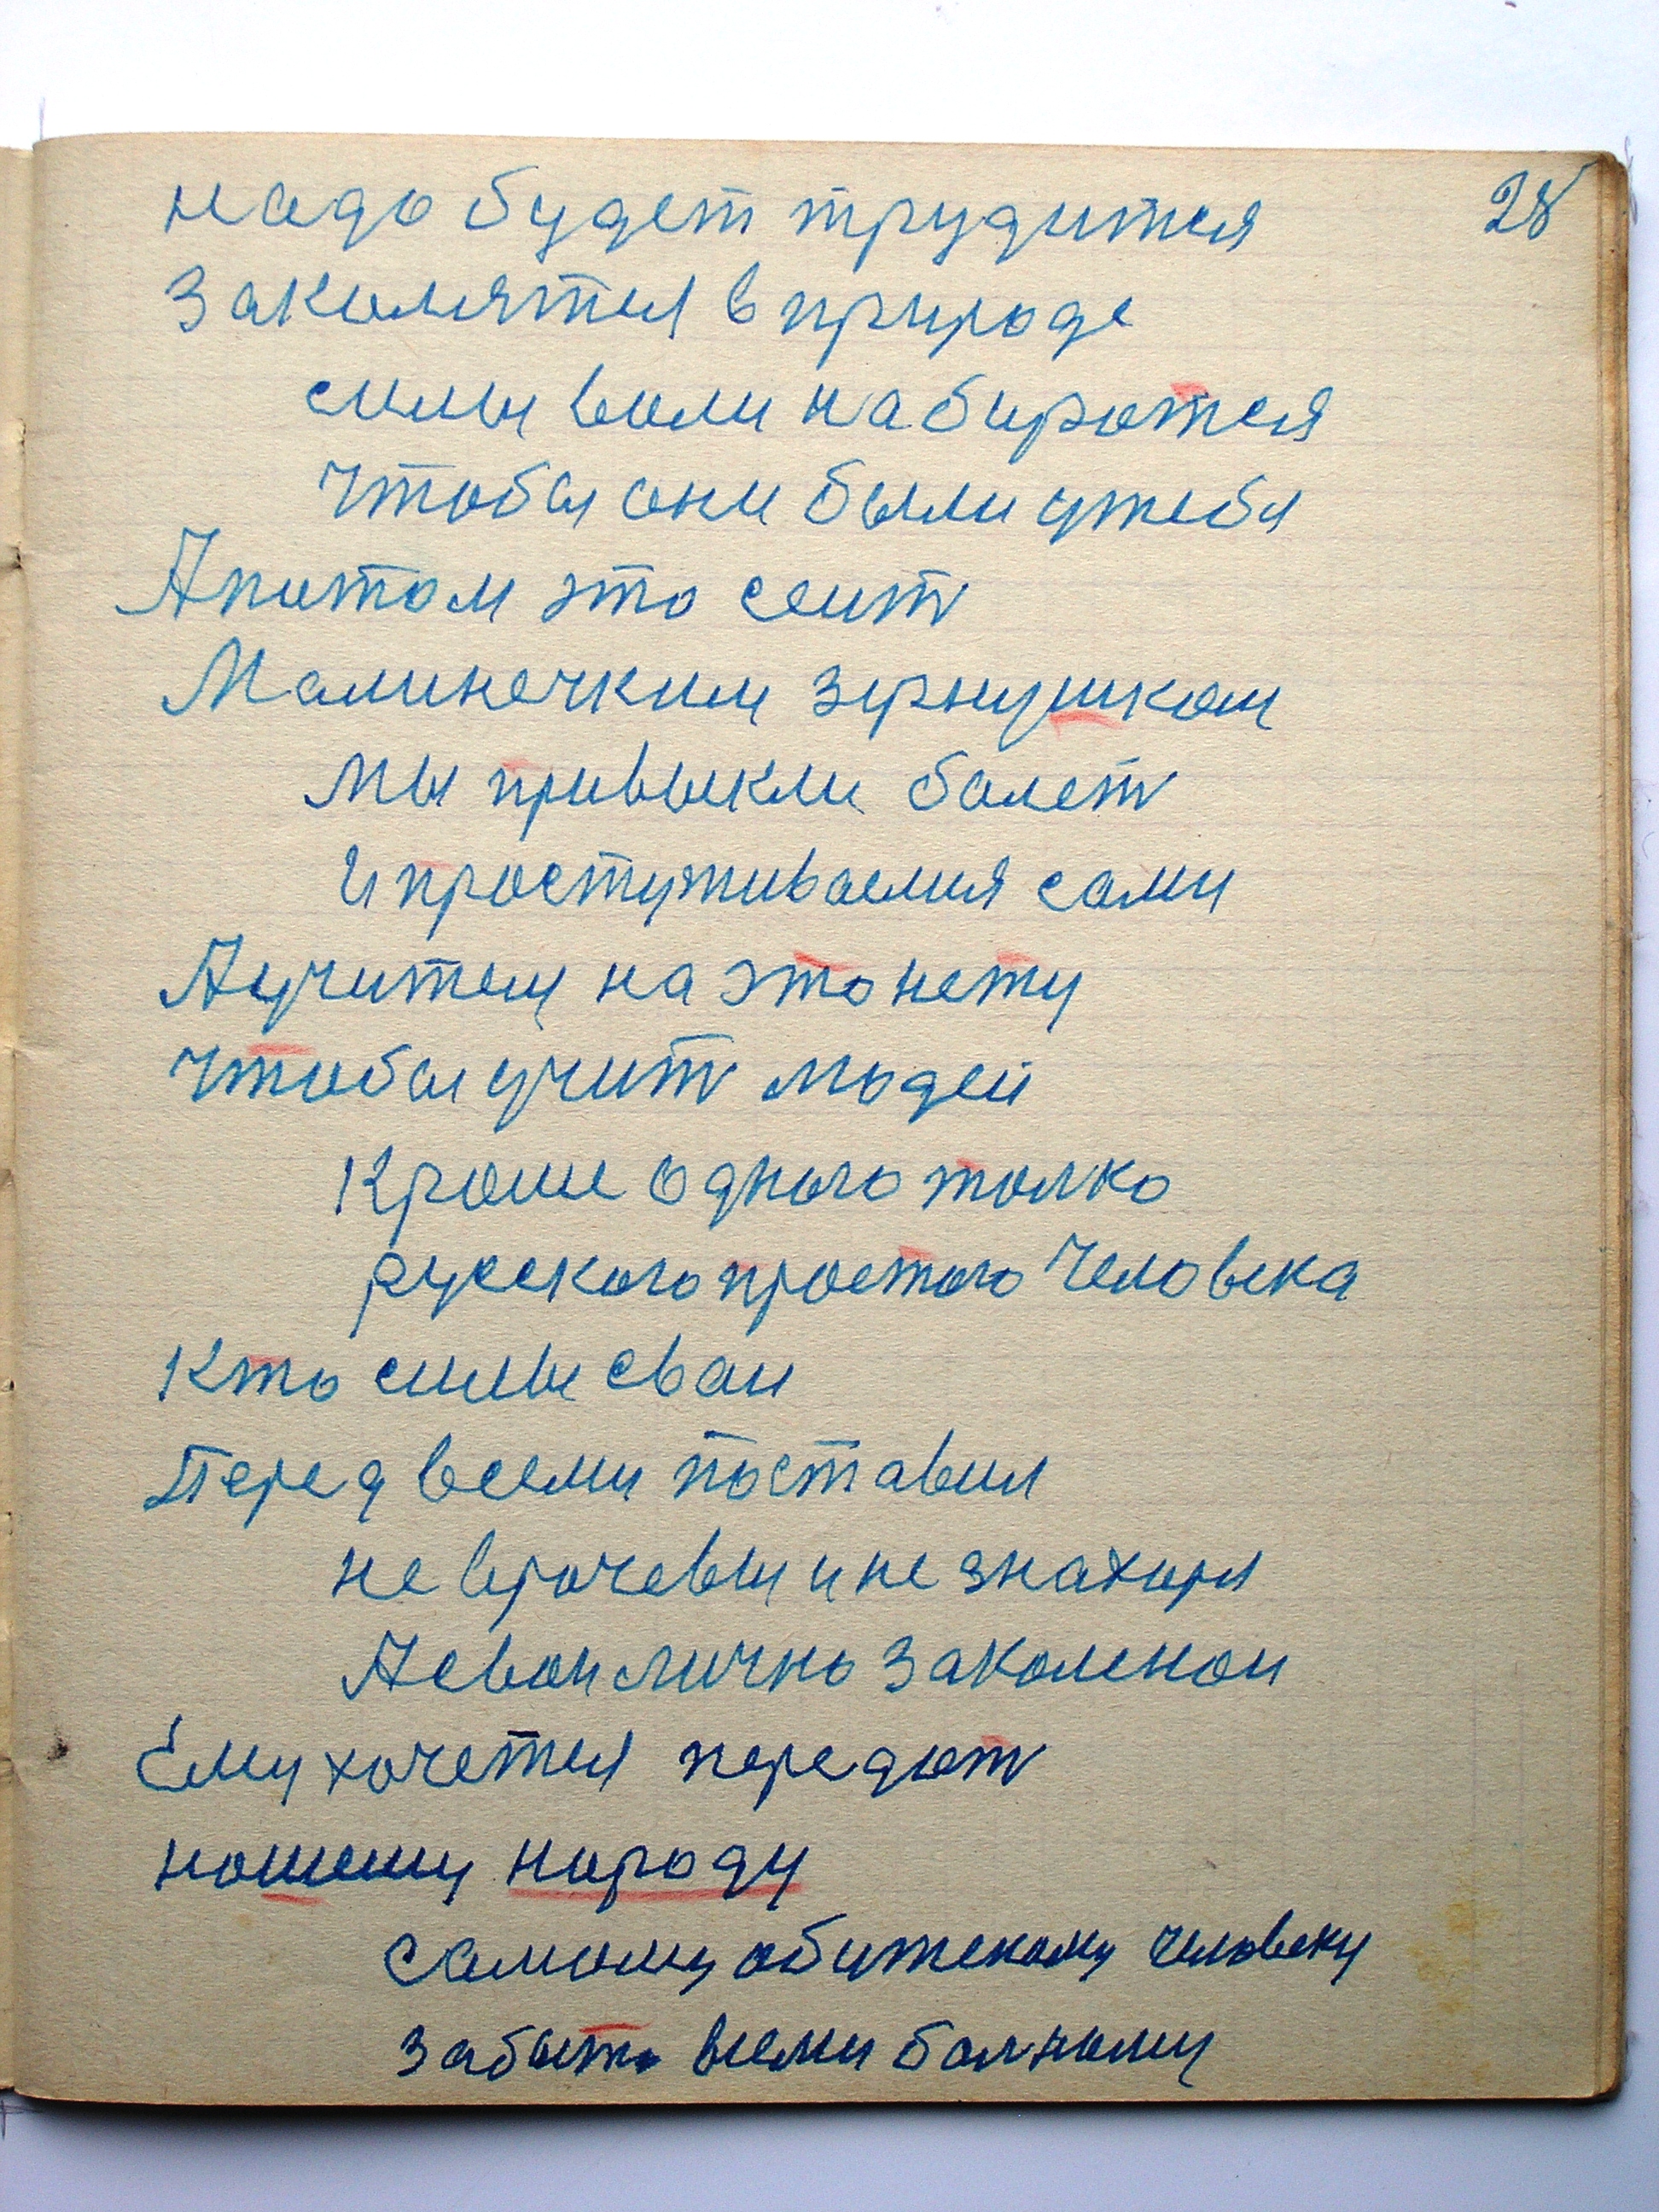 28
надо будет трудится
Закалятся в природе
силы воли набиратся
Чтобы они были утебя
Апотом это сеит
Малинечким зернушком
мы привыкли болет
И простуживаемся сами
Аучителя на это нету
Чтобы учит людей
Кроме одного толко
русского простого Человека
Кто силы сваи
Перед всеми поставил
не врачевы и не знахоря
А свои лично Закаленои
Ему хочетися передат
нашему народу
самому обиженому человеку
Забыт всеми болному